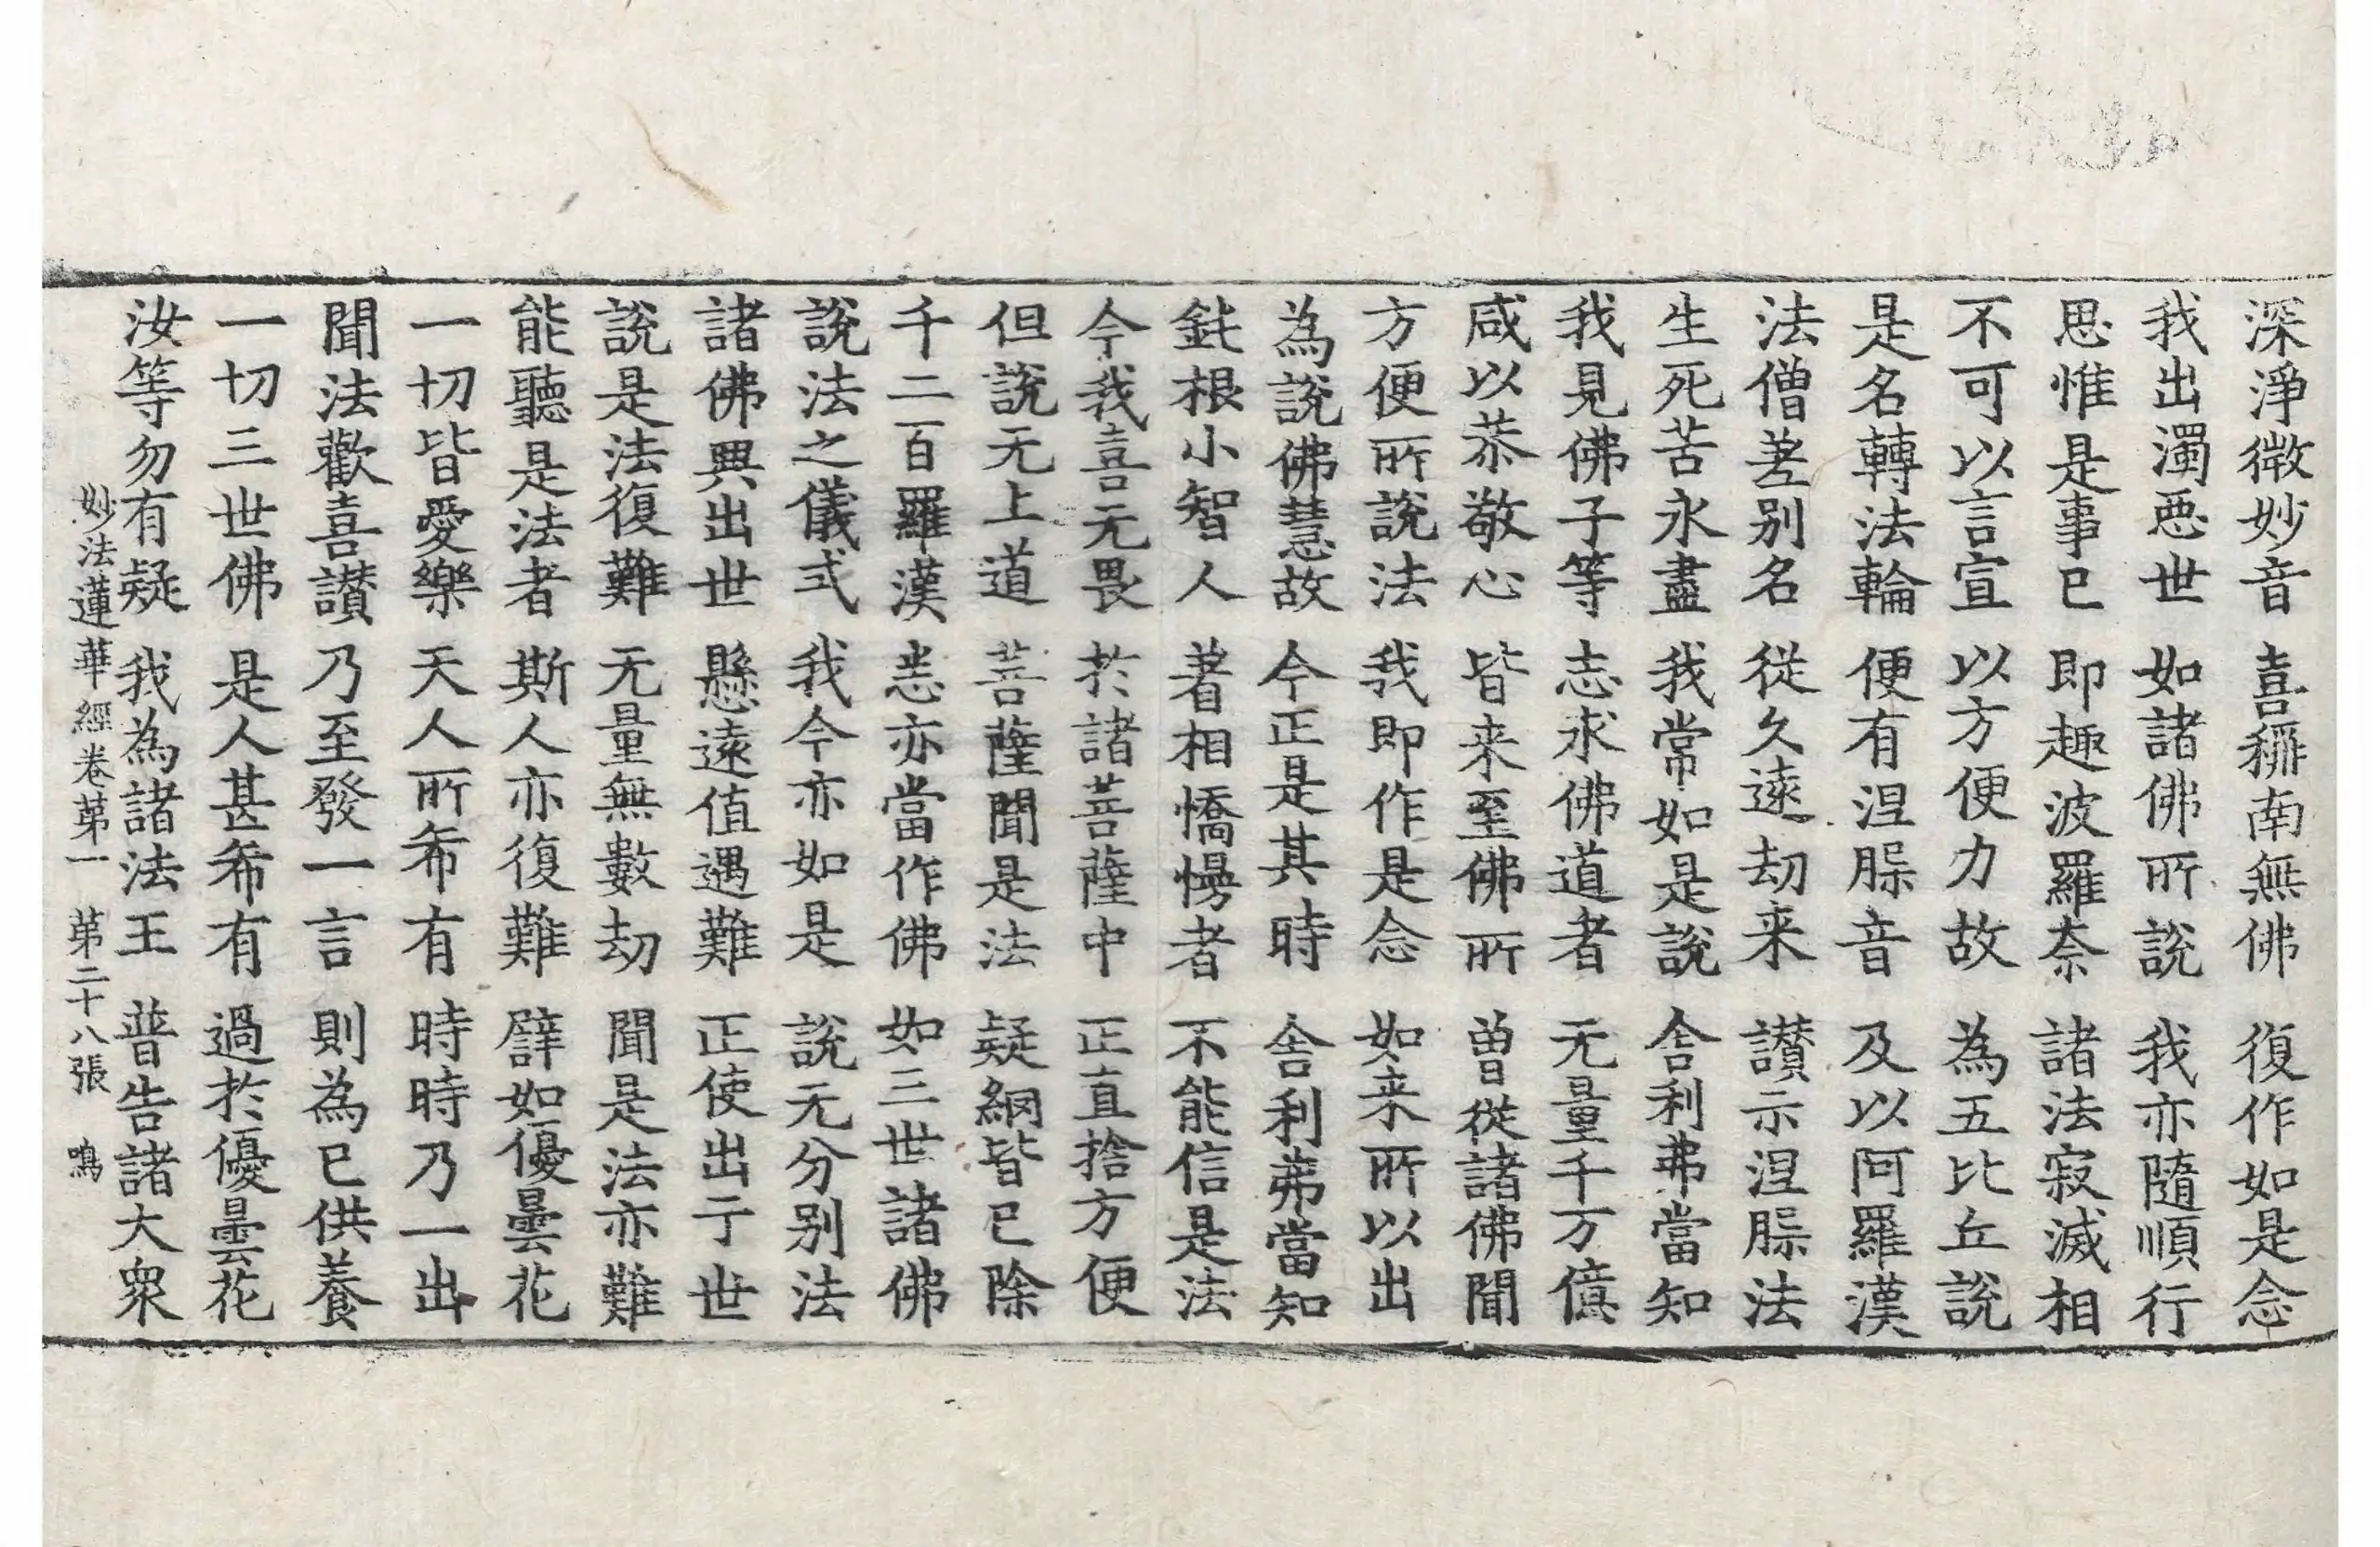 深淨微妙音 喜稱南無佛 復作如是念
我出濁惡世 如諸佛所說 我亦隨順行
思惟是事已 即趣波羅奈 諸法寂滅相
不可以言宣 以方便力故 為五比丘說
是名轉法輪 便有涅槃音 及以阿羅漢
法僧差別名 從久遠劫来 讃示涅槃法
生死苦永盡 我常如是說 舍利弗當知
我見佛子等 志求佛道者 无量千万億
咸以恭敬心 皆来至佛所 曾從諸佛聞
方便所說法 我即作是念 如来所以出
為說佛慧故 今正是其時 舍利弗當知
鈍根小智人 著相憍慢者 不能信是法
今我喜无畏 於諸菩薩中 正直捨方便
但說无上道 菩薩聞是法 疑網皆已除
千二百羅漢 悉亦當作佛 如三世諸佛
說法之儀式 我今亦如是 說无分別法
諸佛興出世 懸遠值遇難 正使出于世
說是法復難 无量無數劫 聞是法亦難
能聽是法者 斯人亦復難 譬如優曇花
一切皆愛樂 天人所希有 時時乃一出
聞法歡喜讃 乃至發一言 則為已供養
一切三世佛 是人甚希有 過於優曇花
汝等勿有疑 我為諸法王 普告諸大衆
妙法蓮華經卷苐一 苐二十八張 鳴